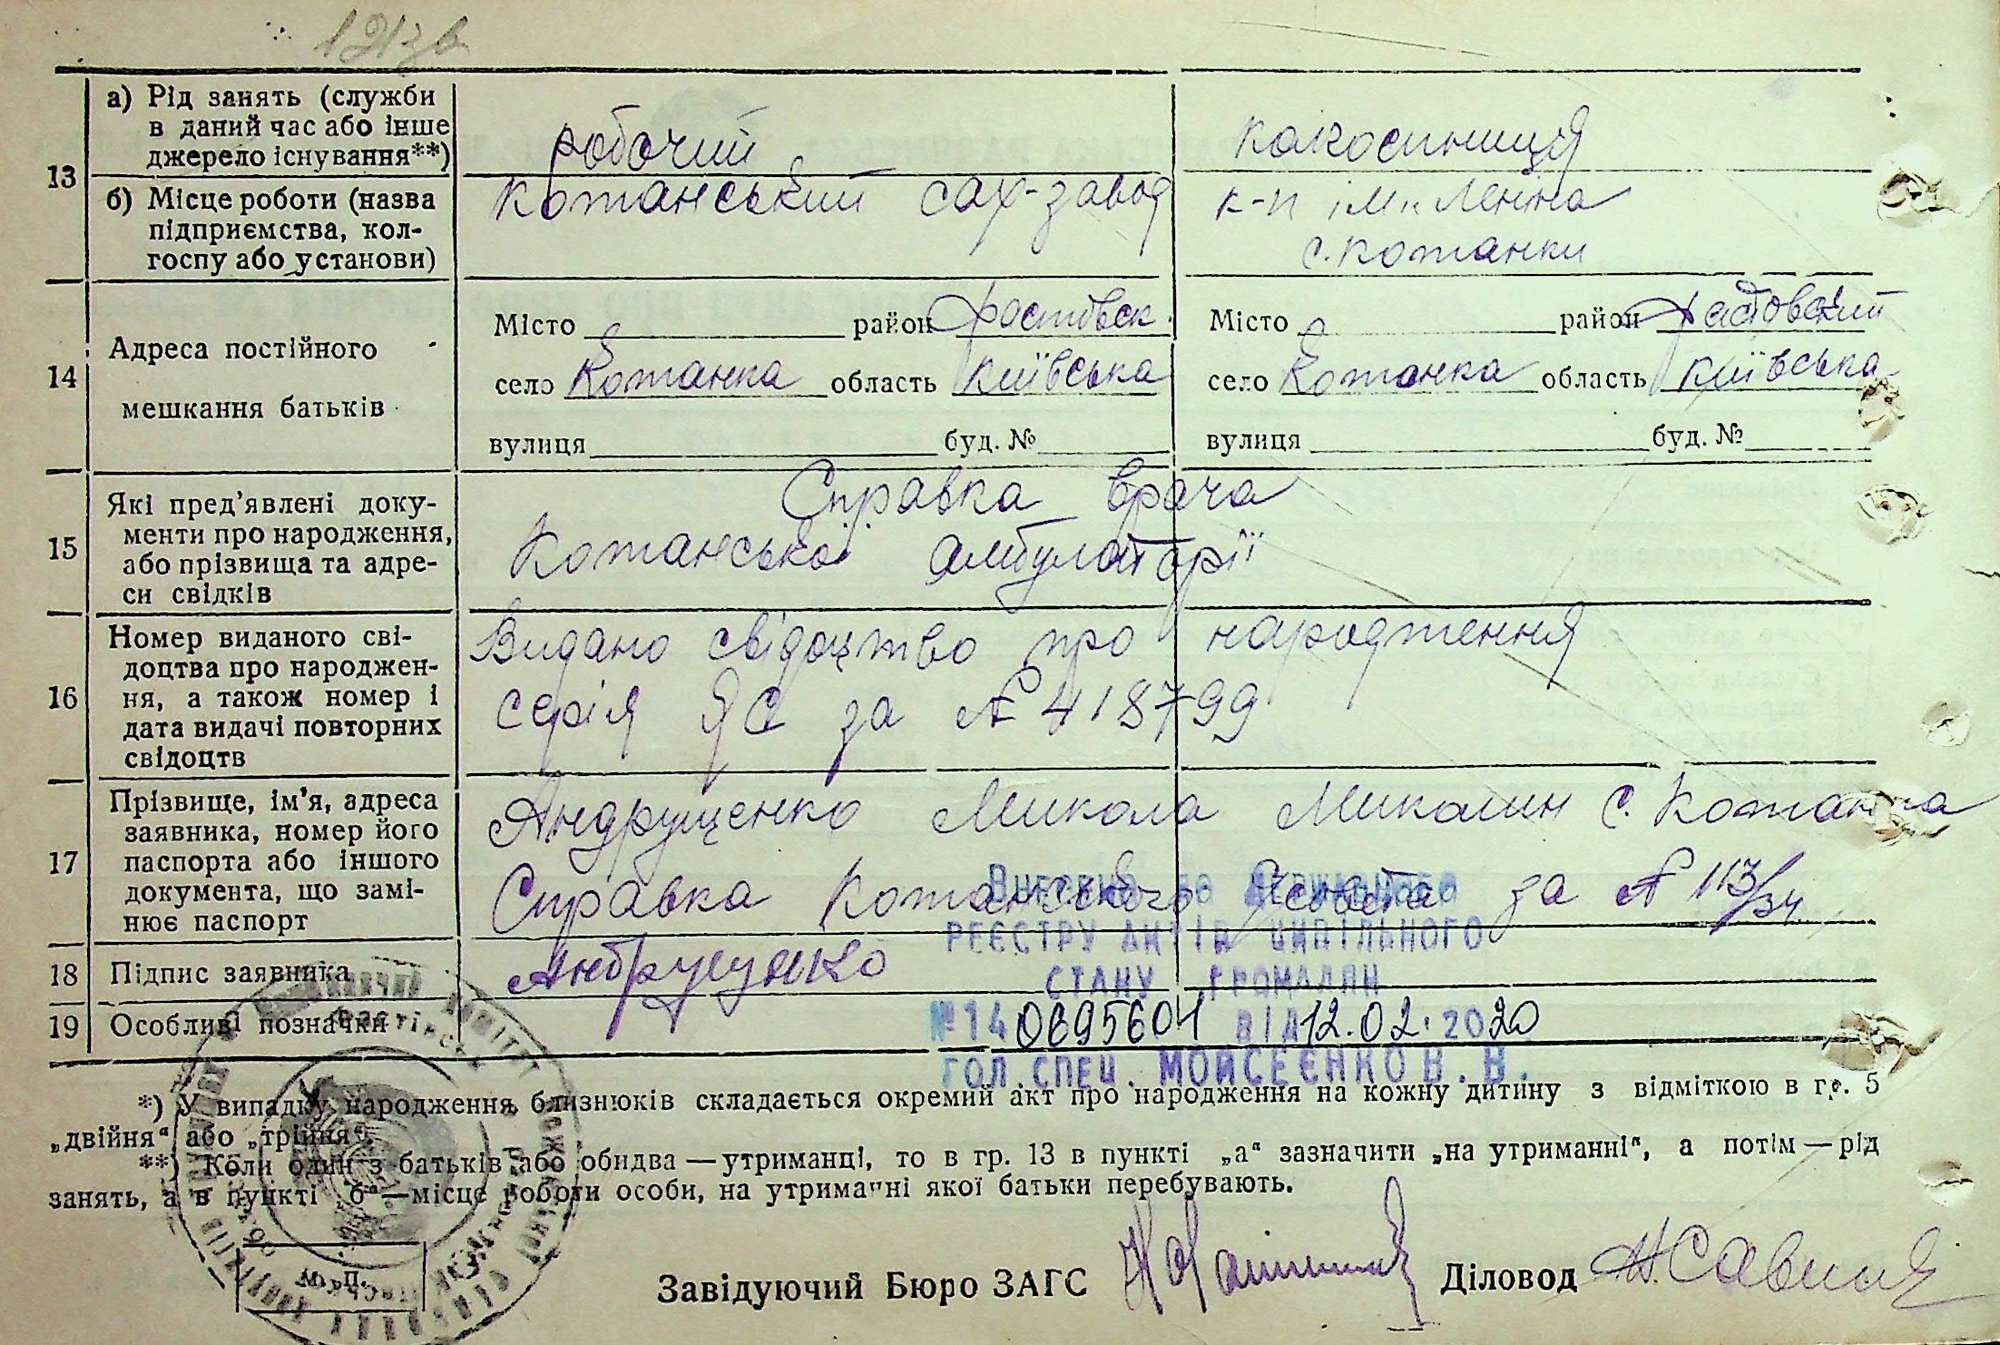 13
а) Рід занять (служби
в даний час або інше
джерело існування**)
робочий
колгоспниця
б) Місце роботи (назва
підприємства, кол-
госпу або установи)
Кожанський сах-завод
к-п ім. Леніна
с. Кожанки
14
Адреса постійного
мешкання батьків
Місто район Фастівськ.
село Кожанка область Київська
вулиця буд. №
Місто район Фастовский
село Кожанка область Київська
вулиця буд. №
15
Які пред’явлені доку-
менти про народження,
або прізвища та адре-
си свідків
Справка врача
Кожанської амбулаторії
16
Номер виданого сві-
доцтва про народжен-
ня, а також номер і
дата видачі повторних
свідоцтв
Видано свідоцтво про народження
серія ЯС за № 418799
17
Прізвище, ім’я, адреса
заявника, номер його
паспорта або іншого
документа, що замі-
нює паспорт
Андрущенко Микола Миколин с. Кожанка
Справка Кожанського за № 113/34
18
Підпис заявника
Андрущенко
19
Особливі позначки
Внесено до Державного
реєстру актів цивільного
стану громадян
№ 14 0695601 від 12.02.2020
гол. спец. Мойсеєнко В. В.
*) У випадку народження близнюків складається окремий акт про народження на кожну дитину з відміткою в гр. 5
„двійня“ або „трійня“.
**) Коли один з батьків або обидва — утриманці, то в гр. 13 в пункті „а“ зазначити „на утриманні“, а потім — рід
занять, а в пункті „б“ — місце роботи особи, на утриманні якої батьки перебувають.
М. П.
Завідуючий Бюро ЗАГС
Діловод